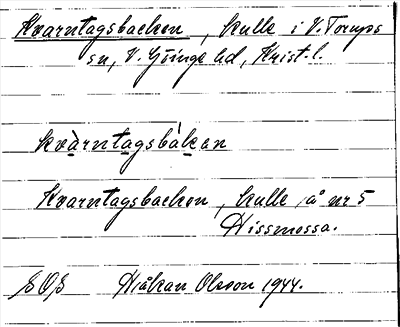 Kvarntagsbacken, kulle i V. Torups
sn, V. Göinge hd, Krist. l.
kvàrntagsbàkan
Kvarntagsbacken, kulle å nr 5
Hissmossa.
Håkan Olsson 1944.